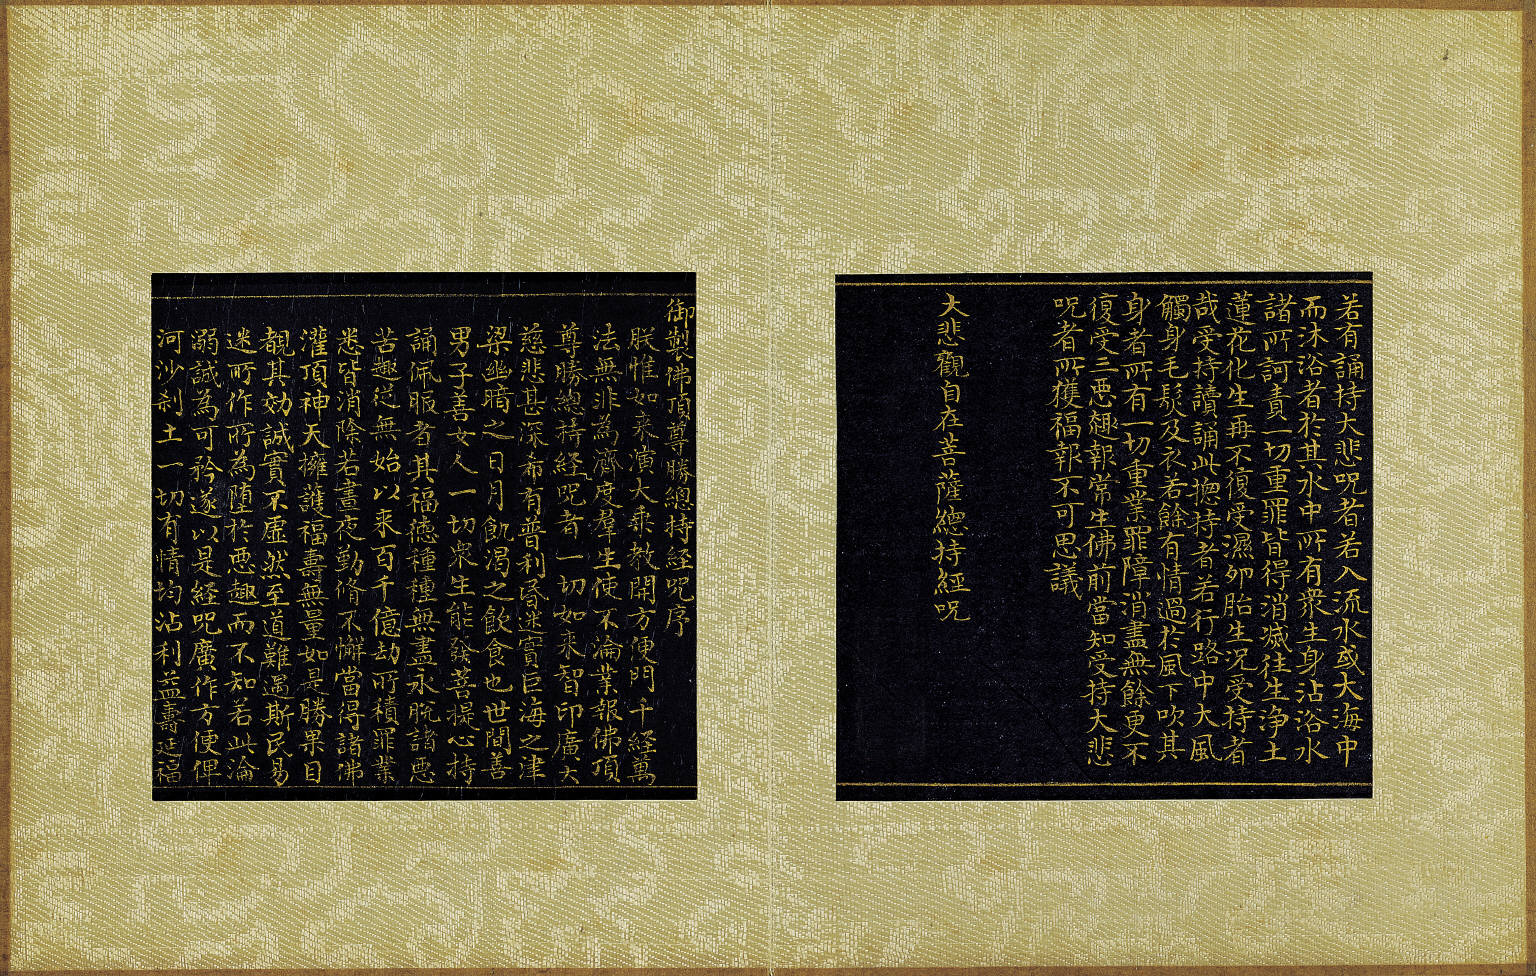 若有誦持大悲呪者若入流水或大海中
而沐浴者於其水中所有衆生身沾浴水
諸所訶責一切重罪皆得消滅往生浄土
蓮花化生再不復受濕卵胎生况受持者
哉受持讀誦此揔持者若行路中大風
觸身毛髮及衣若餘有情過於風下吹其
身者所有一切重業罪障消盡無餘更不
復受三惡趣報常生佛前當知受持大悲
呪者所獲福報不可思議
大悲觀自在菩薩總持經呪
御製佛頂尊勝總持經呪序
朕惟如来演大乘教開方便門千經萬
法無非為濟度羣生使不淪業報佛頂
尊勝總持經呪者一切如来智印廣大
慈悲甚深希有普利昏迷實巨海之津
梁幽暗之日月飢渴之飲食也世間善
男子善女人一切衆生能發菩提心持
誦佩服者其福德種種無盡永脫諸惡
苦趣從無始以来百千億劫所積罪業
悉皆消除若晝夜勤脩不懈當得諸佛
灌頂神天擁護福壽無量如是勝果目
覩其効誠實不虛然至道難遇斯民易
迷所作所為墮於惡趣而不知若此淪
溺誠為可矜遂以是經呪廣作方便俾
河沙刹土一切有情均沾利益壽延福